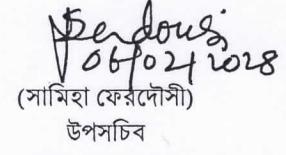 Ferdousi
06/02/2028
(সামিহা ফেরদৌসী)
উপসচিব